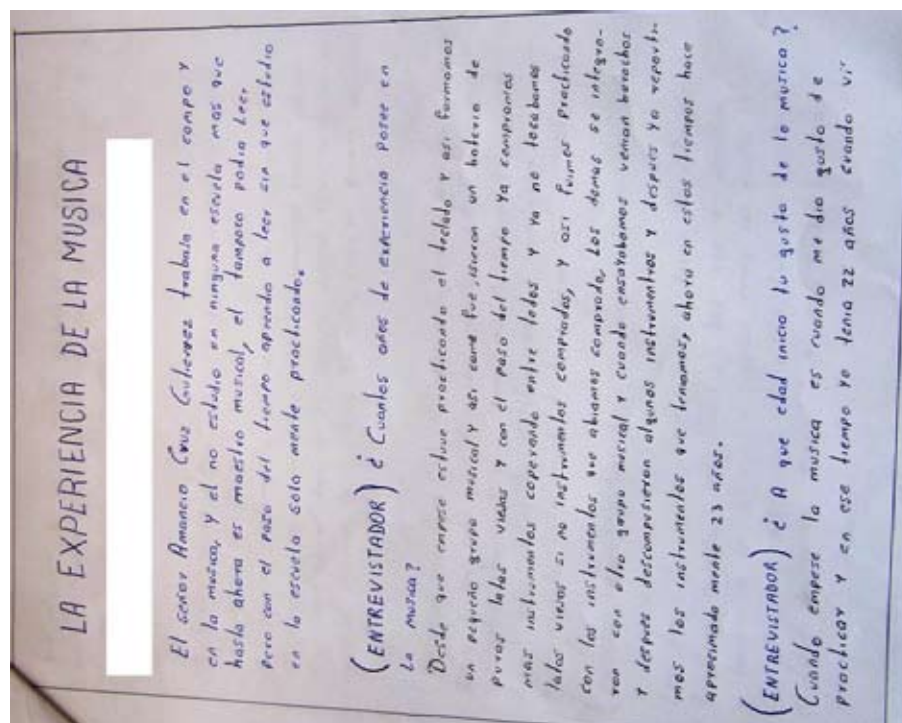 LA EXPERIENCIA DE LA MUSICA
El señor Amancio Cruz Gutierrez trabaja en el campo y
en la musica, y el no estudio en ninguna escuela mas que
hasta ahora es maestro musical, el tampoco podia leer
pero con el paso del tiempo aprendio a leer sin que estudio
en la escuela solo mente practicando.
(ENTREVISTADOR) ¿ Cuantos años de experiencia posee en
la musica?
Desde que empese estuve practicando el teclado y asi formamos
un pequeño grupo musical y asi como fue, isieron un bateria de
puras latas viejas y con el paso del tiempo ya compramos
mas instrumentos coperando entre todos y ya no tocabamos
latas viejas si no instrumentos comprados, y asi fuimos practicando
con los instrumentos que abiamos comprado, Los demas se integra-
ron con otro grupo musical y cuando ensayabamos venian borrachos
y despues descompusieron algunos instrumentos y despues ya reparti-
mos los instrumentos que teniamos, ahora en estos tiempos hace
aproximada mente 23 años.
(ENTREVISTADOR) ¿ A que edad inicio tu gusto de la musica?
Cuando empese la musica es cuando me dio gusto de
practicar y en ese tiempo yo tenia 22 años cuando vi